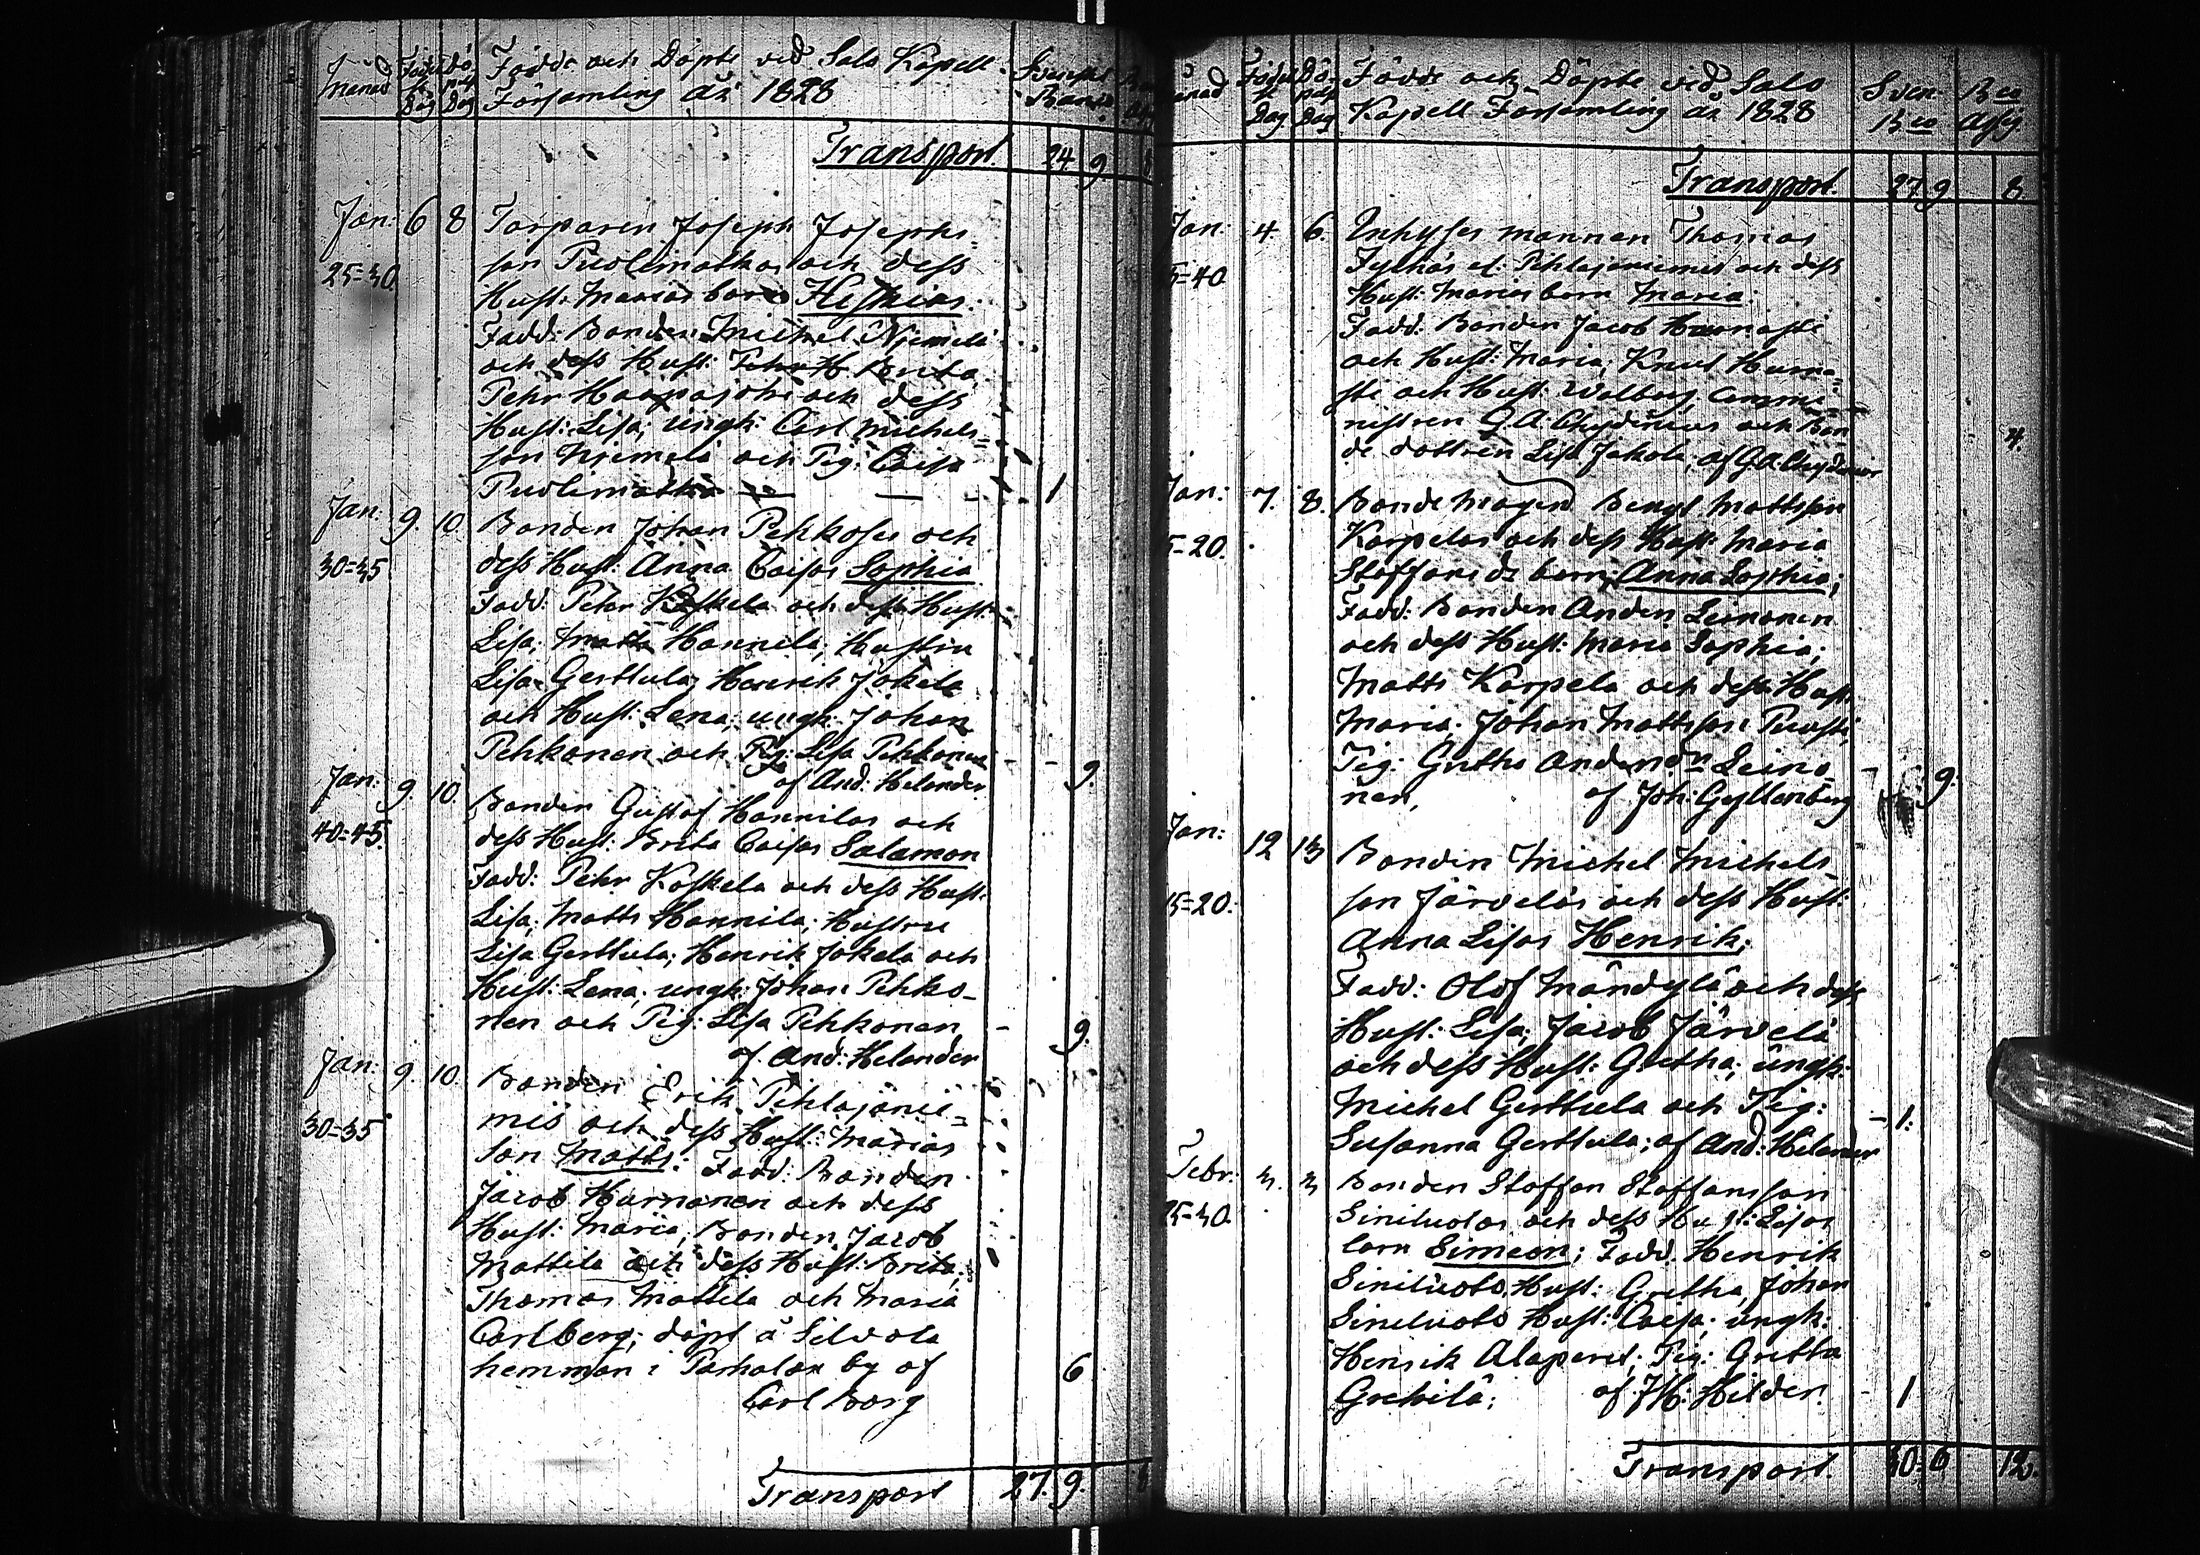 Månad Födelse Dag Döpelse Dag Födde och Döpte vid Salo Kapell
Församling År 1828
Transport 24. 9 8
Jan: 6 8 Torparen Joseph Josephs-
25=30. son Puolimatkas och dess
Hust: Marias barn Heskias.
Fadd: Bonden Michel Njemelä
och dess Hust: Brita
Pehr Haapajohi och dess
Hust: Lisa; ungk: Carl Michels=
son Njemelä och Pig: Caisa
Puolimatka — — - 1
Jan: 9. 10. Bonden Johan Pehkoses och
30=35 dess Hust: Anna Caisas Sophia
Fadd: Pehr Koskela och dess Hust:
Lisa; Matts Hannila; Hustru
Lisa Gerttula; Henrik Jokela
och Hust: Lena; ungk: Johan
Pehkonen och Pig: Lisa Pehkonen - - 9.
af And: Helander
Jan: 9. 10. Bonden Gustaf Hannilas och
40=45. dess Hust: Brita Caisas Salamon
Fadd: Pehr Koskela och dess Hust:
Lisa; Matts Hannila; Hustru
Lisa Gerttula; Henrik Jokela och
Hust: Lena; ungk: Johan Pehko-
nen och Pig: Lisa Pehkonen - 9.
af And: Helander
Jan: 9. 10 Bonden Erik Pihlajanie=
30=35 mis och dess Hust: Marias
son Matts: Fadd: Bonden
Jacob Hurnanen och dess
Hust: Maria, Bonden Jacob
Mattila och dess Hust: Brita;
Thomas Mattila och Maria
Carlberg; döpt å Silvola
hemman i Parhalax by af 6
Carl Borg
Transport 27. 9. 8
Månad Födelse Dag Döpelse Dag Födde och Döpte vid Salo
Kapell Församling år 1828 Sven. Bco Bco Assig
Transport. 27. 9. 8.
Jan: 4 6. Inhyses mannen Thomas
35=40. och dess
Hust: Marias barn Maria.
Fadd: Bonden Jacob Hurnasti
och Hust: Maria; Knut Hurna=
sti och Hust: Walborg, Commi-
nistren G. A. Chydenius och Bon
de dottren Lisa Jakola; af G. A. Chydenius 4.
Jan: 7. 8. Bonde Magen Bengt Mattsson
15=20. Karpelas och dess Hust: Maria
Staffans dr barn Anna Sophia;
Fadd: Bonden Anders Leinonen
och dess Hust: Maria Sophia;
Matts Karpela och dess Hust:
Maria; Johan Mattsson
Pig: Gretha Anders dr Leino- - 9.
nen, af Joh: Gyllenberg
Jan: 12 13 Bonden Michel Michels-
15=20: son Järveläs och dess Hust:
Anna Lisas Henrik;
Fadd: Olof Mändylä och dess
Hust: Lisa; Jacob Järvelä
och dess Hust: Gretha; ungk:
Michel Gerttula och Pig: - 1.
Susanna Gerttula; af And: Helander
Febr: 3. 3 Bonden Staffan Staffansson
25=30. Siniluotos och dess Hust: Lisas
barn Simeon; Fadd: Henrik
Siniluoto, Hust: Gretha, Johan
Siniluoto Hust: Caisa; ungk:
Henrik Alaperet; Pig: Gretha
Grekilä; af J H: Helder. - 1
Transport. 30. 6 12.